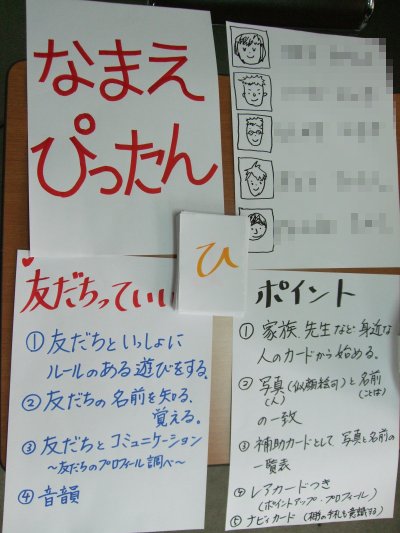 なまえ
ぴったん
ひ
友だちっていい
① 友だちといっしょに
ルールのある遊びをする。
② 友だちの名前を知る、
覚える。
③ 友だちとコミュニケーション
～友だちのプロフィール調べ～
④ 音韻
ポイント
① 家族、先生など身近な
人のカードから始める。
② 写真(似顔絵可)と名前
(人) (ことば)
の一致
③ 補助カードとして 写真と名前の
一覧表
④ レアカードつき
(ポイントアップ・プロフィール)
⑤ ナビィカード (相手の手札を意識する)